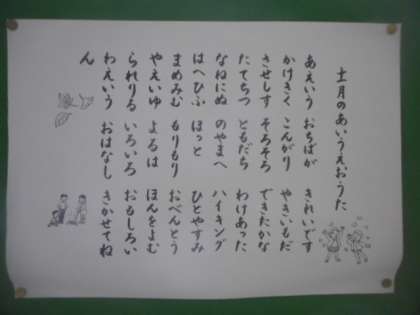 十一月のあいうえおうた
あえいう おちばが きれいです
かけきく こんがり やきいもだ
させしす そろそろ できたかな
たてちつ ともだち わけあった
なねにぬ のやまへ ハイキング
はへひふ ほっと ひとやすみ
まめみむ もりもり おべんとう
やえいゆ よるは ほんをよむ
られりる いろいろ おもしろい
わえいう おはなし きかせてね
ん